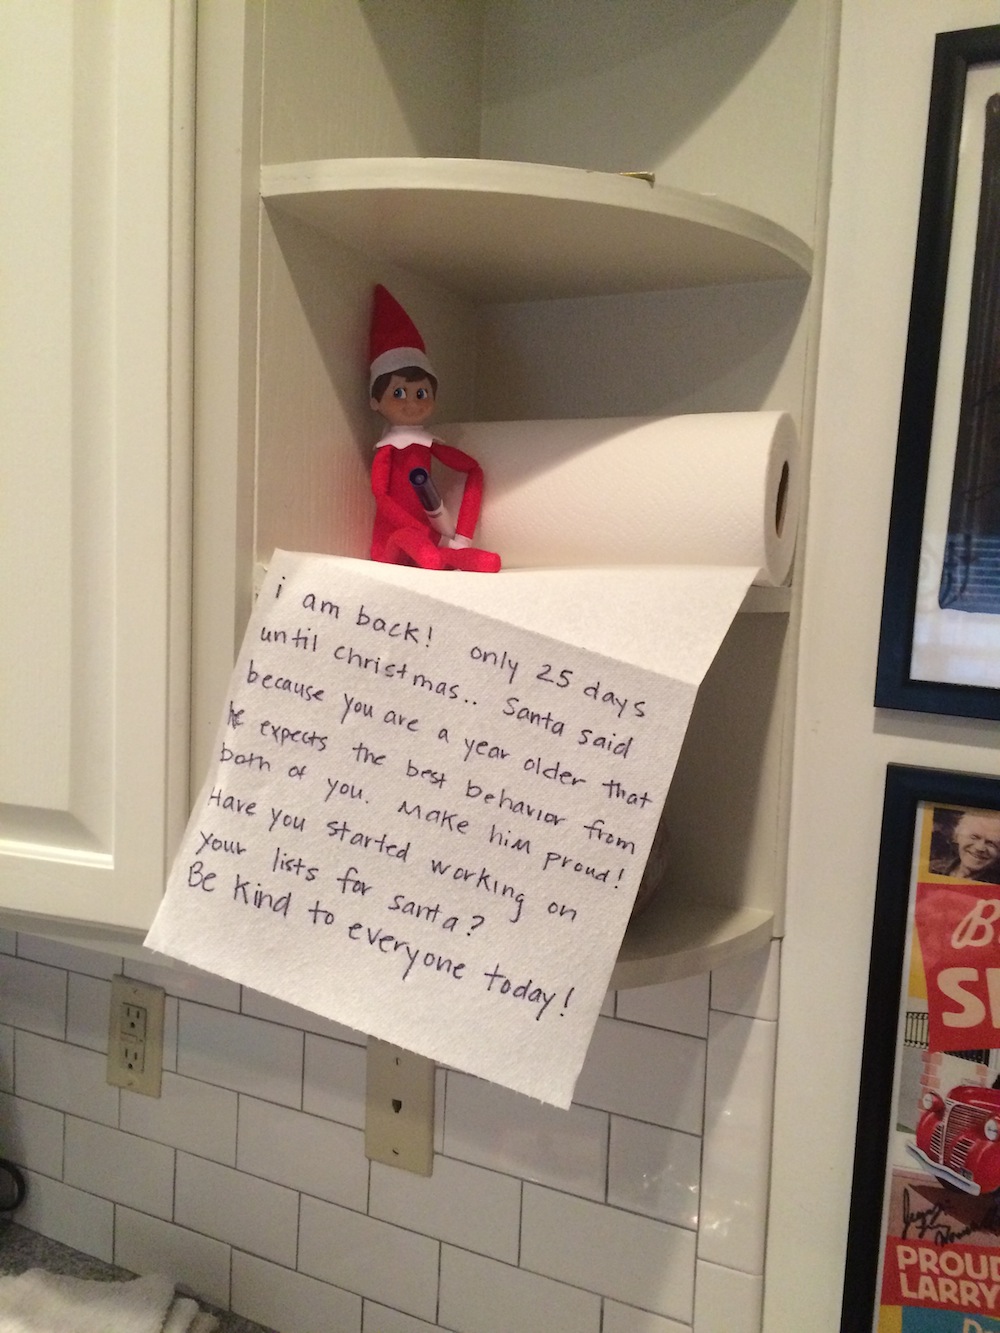 i am back! only 25 days
until christmas.. Santa said
because you are a year older that
he expects the best behavior from
both of you. Make him proud!
Have you started working on
your lists for santa?
Be kind to everyone today!
PROUD
LARRY